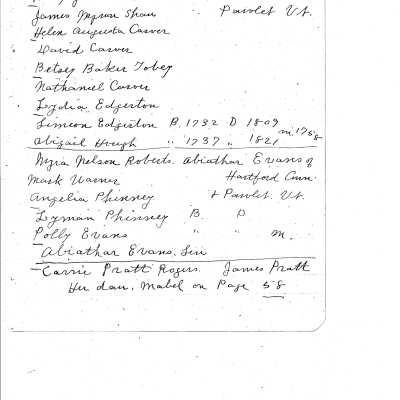 James Myron Shaw " Pawlet Vt.
Helen Augusta Carver
David Carver
Betsey Baker Tobey
Nathaniel Carver
Lydia Edgerton
Simeon Edgerton B. 1732 D 1809
m. 1758
Abigail Hough " 1737 " 1821
Myra Nelson Roberts. Abiathar Evans of
Mark Warner Hartford Conn.
Angelia Phinney + Pawlet. Vt.
Lyman Phinney B. D
Polly Evans " " m.
Abiathar Evans. Sen
Carrie Pratt Rogers. James Pratt
Her dau. Mabel on Page 58